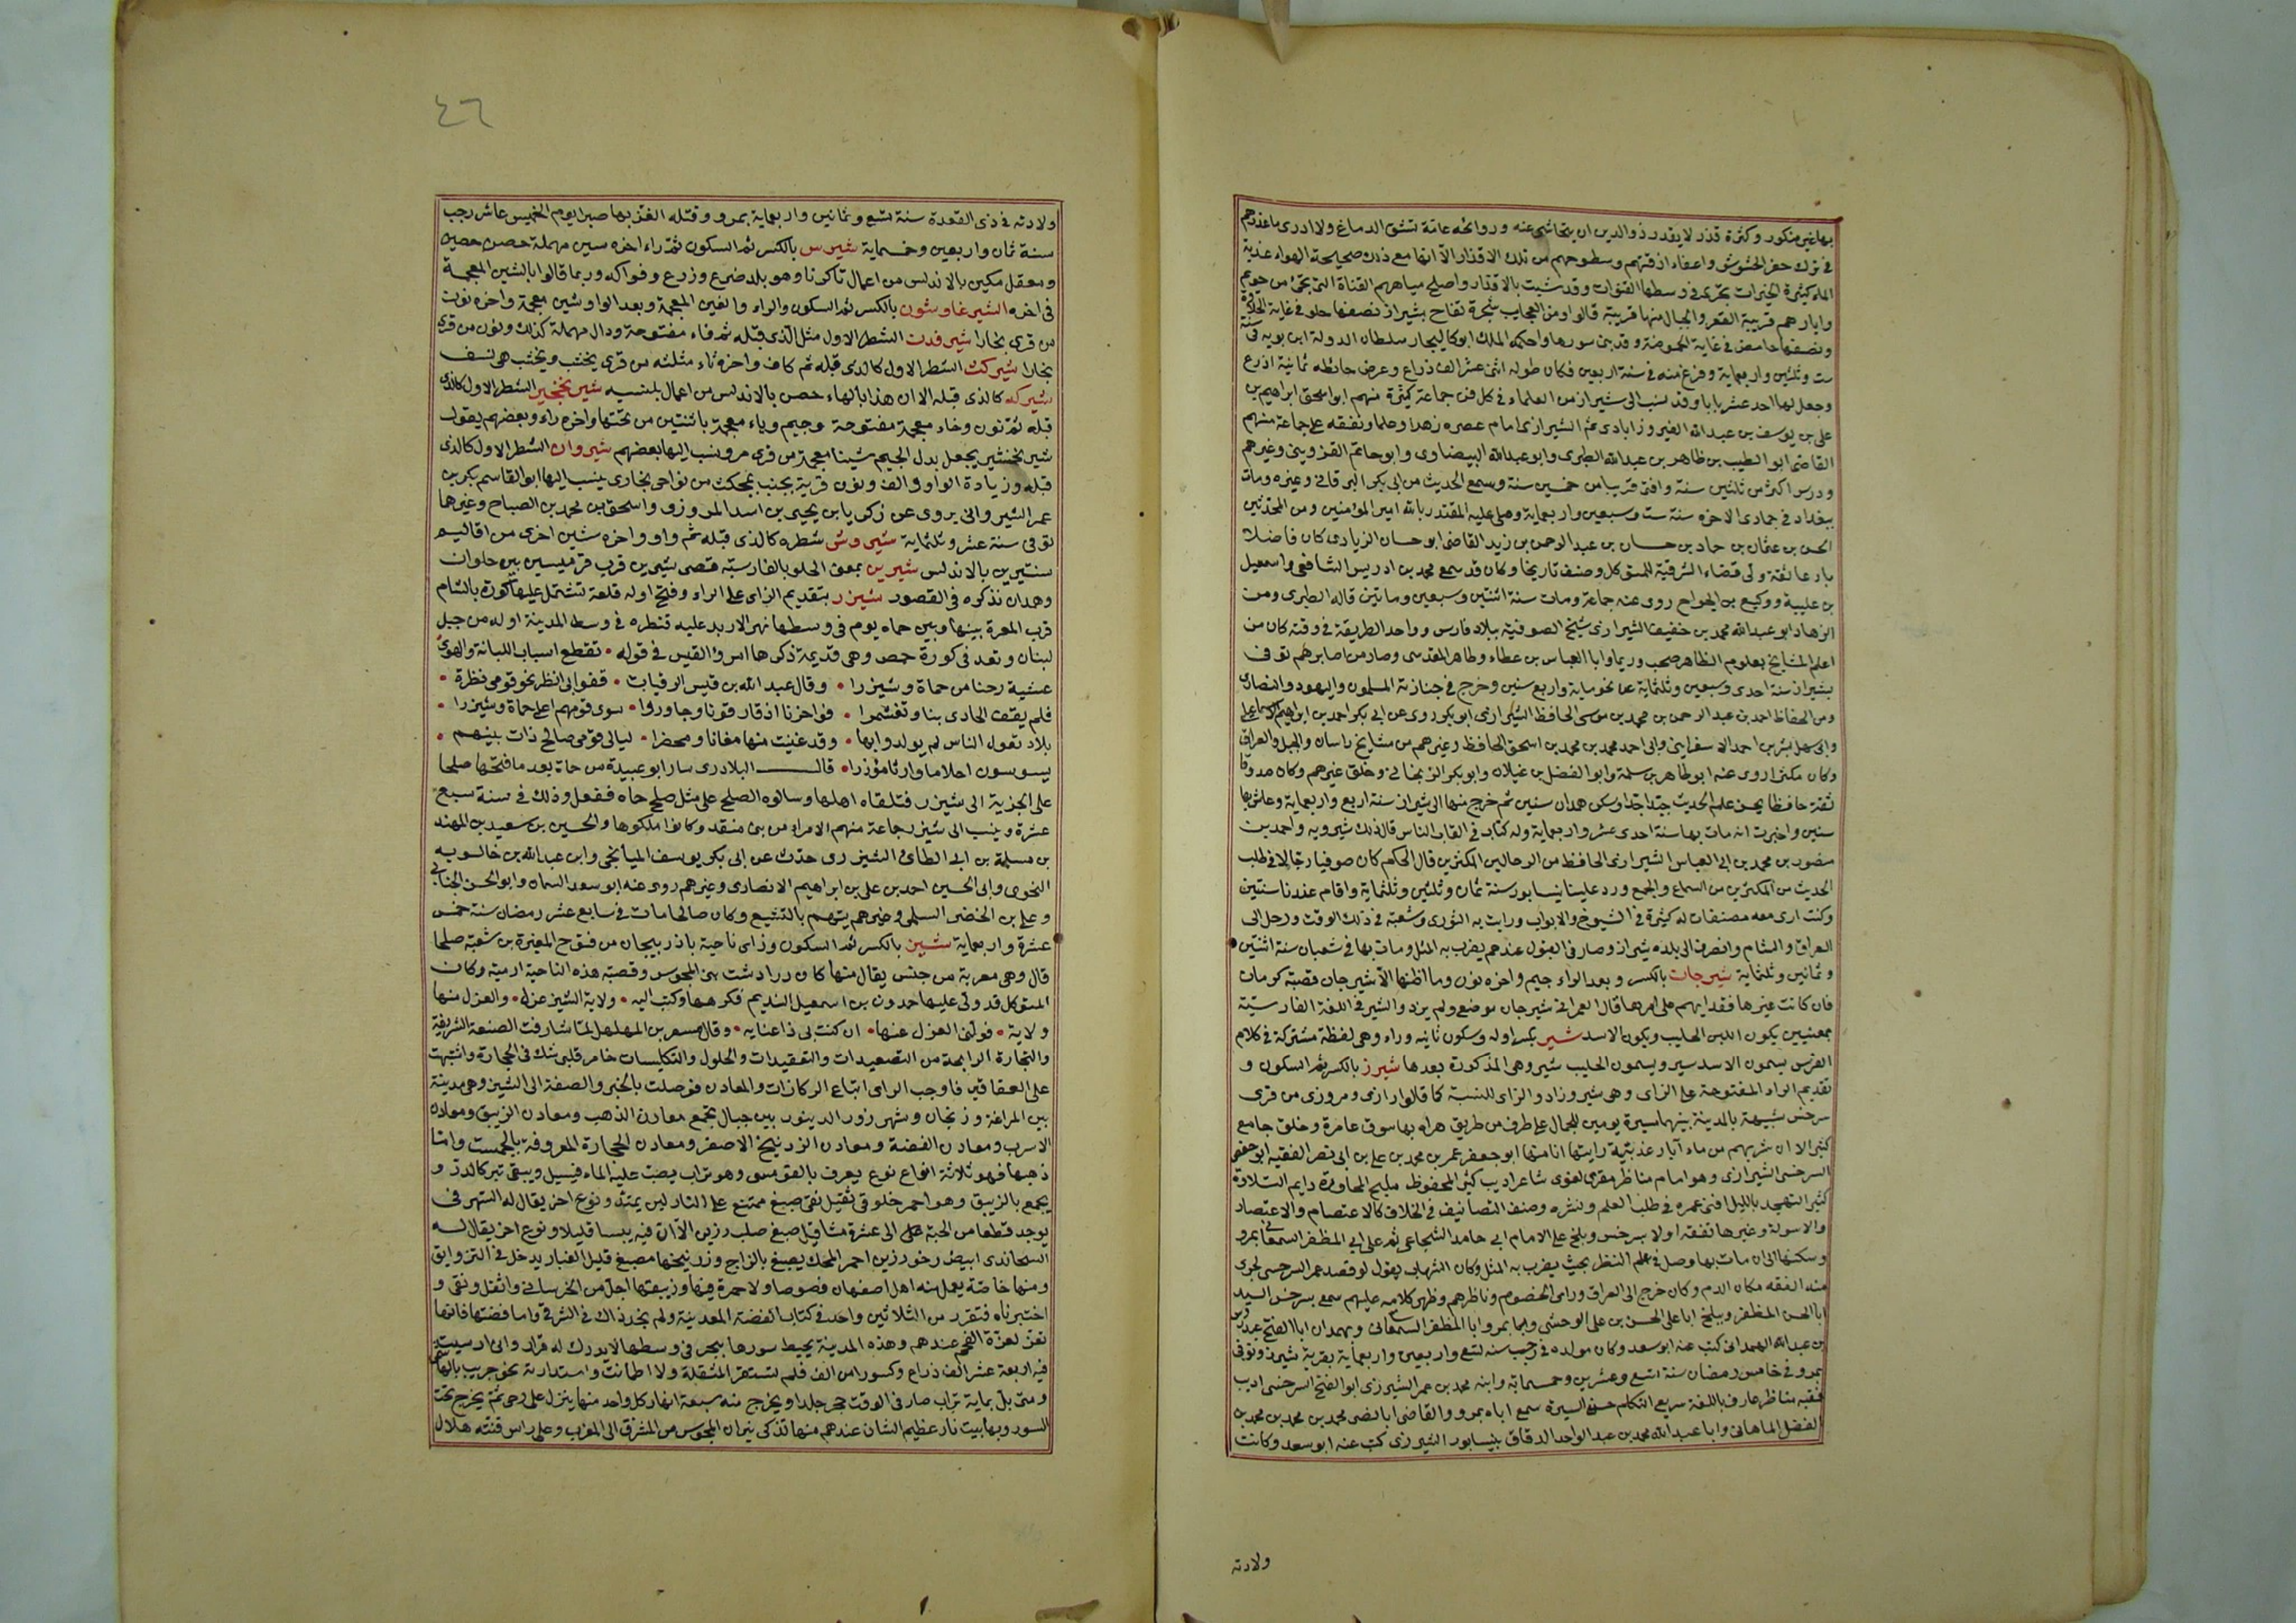 بها غير منكور وكثرة قذر لا يقدر ذو الدين ان يتحاشى عنه وروائحه عامة تنشق الدماغ ولا ادرى ما عذرهم
فى ترك حفر الحشوش واعفاء ازقتهم وسطوحهم من تلك الاقذار الا انها مع ذلك صحيحة الهواء عذبة
الماء كثيرة الخيرات تجرى فى وسطها القنوات وقد شيبت بالاقذار واصلح مياههم القناة التى تجئ من جويم
وابارهم قريبة القعر والجبال منها قريبة قالوا ومن العجايب شجرة تفاح بشيراز نصفها حلو فى غاية الحلاوة
ونصفها حامض فى غاية الحموضة وقد بنى سورها واحكمه الملك ابو كاليجار سلطان الدولة ابن بويه فى سنة
ست وثلثين واربعماية وفرغ منه فى سنة اربعين فكان طوله اثنى عشر الف ذراع وعرض حائطه ثمانية اذرع
وجعل لها احد عشر بابا وقد نسب الى شيراز من العلماء فى كل فن جماعة كثيرة منهم ابو اسحق ابراهيم بن
على بن يوسف بن عبد الله الفيروزابادى ثم الشيرازى امام عصره زهدا وعلما وتفقه على جماعة منهم
القاضى ابو الطيب بن طاهر بن عبد الله الطبرى وابو عبد الله البيضاوى وابو حاتم القزوينى وغيرهم
ودرس اكثر من ثلثين سنة وافتى قريبا من خمسين سنة وسمع الحديث من ابى بكر البرقانى وغيره ومات
ببغداد فى جمادى الاخره سنة ست وسبعين واربعماية وصلى عليه المقتدر بالله امير المؤمنين ومن المحدثين
الحسن بن عثمان بن حماد بن حسان بن عبد الرحمن بن زيد القاضى ابو حسان الزيادى كان فاضلا
بارعا ثقة ولى قضاء الشرقية للمتوكل وصنف تاريخا وكان قد سمع محمد بن ادريس الشافعى واسمعيل
بن علية ووكيع بن الجراح روى عنه جماعة ومات سنة اثنتين وسبعين وماتين قاله الطبرى ومن
الزهاد ابو عبد الله محمد بن خفيف الشيرازى شيخ الصوفية ببلاد فارس وواحد الطريقة فى وقته كان من
اعلم المشايخ بعلوم الظاهر صحب رويما وابا العباس بن عطاء وطاهر المقدسى وصار من اكابرهم توفى
بشيراز سنة احدى وسبعين وثلثماية عن نحو ماية واربع سنين وخرج فى جنازته المسلمون واليهود والنصارى
ومن الحفاظ احمد بن عبد الرحمن بن محمد بن موسى الحافظ الشيرازى ابو بكر روى عن ابى بكر احمد بن ابراهيم الاسماعيلى
وابى سهل بشر بن احمد الاسفراينى وابى احمد محمد بن محمد بن اسحق الحافظ وغيرهم من مشايخ خراسان والجبل والعراق
وكان مكثرا روى عنه ابو طاهر بن سلمة وابو الفضل بن غيلان وابو بكر الزنجانى وخلق غيرهم وكان صدوقا
ثقة حافظا يحسن علم الحديث جيدا جدا وسكن همدان سنين ثم خرج منها الى شيراز سنة اربع واربعماية وعاش بها
سنين واخبرت انه مات بها سنة احدى عشر واربعماية وله كتاب فى القاب الناس قال ذلك شيرويه واحمد بن
منصور بن محمد بن ابى العباس الشيرازى الحافظ من الرحالين المكثرين قال الحاكم كان صوفيا رحالا فى طلب
الحديث من المكثرين من السماع والجمع ورد علينا نيسابور سنة ثمان وثلثين وثلثماية واقام عندنا سنتين
وكنت ارى معه مصنفات له كثيرة فى الشيوخ والابواب ورايت به الثورى وشعبة فى ذلك الوقت ورحل الى
العراق والشام وانصرف الى بلده شيراز وصار فى القبول عندهم يضرب به المثل ومات بها فى شعبان سنة اثنتين
وثمانين وثلثماية شيرجان بالكسر وبعد الراء جيم واخره نون وما اظنها الا شيرجان قصبة كرمان
فان كانت غيرها فقد ابهم على امرها قال العمرانى شيرجان موضع ولم يزد والشير فى اللغة الفارسية
بمعنيين يكون اللبن الحليب ويكون الاسد شير بكسر اوله وسكون ثانيه وراء وهى لفظة مشتركة فى كلام
الفرس يسمون الاسد سير ويسمون الحليب شير وهى المذكورة بعدها شيرز بالكسر ثم السكون و
تقديم الراء المفتوحة على الزاى وهى شيرو زاد والزاى للنسبة كما قالوا رازى ومروزى من قرى
سرخس شبيهة بالمدينة بينهما مسيرة يومين للجمال على طرف من طريق هراه بها سوق عامرة وخلق جامع
كثير الا ان شربهم من ماء آبار عذبية رايتها انا منها ابو جعفر عمر بن محمد بن على بن ابى نصر الفقيه ابو حفص
السرخسى الشيرازى وهو امام مناظر مقرى لغوى شاعر اديب كثير المحفوظ مليح المحاورة دايم التلاوة
كثير التهجد بالليل افنى عمره فى طلب العلم ونشره وصنف التصانيف فى الخلاف كالاعتصام والاعتصار
والاسولة وغيرها تفقه اولا بسرخس وبلخ على الامام ابى حامد الشجاعى ثم على ابى المظفر السمعانى بمرو
وسكنها الى ان مات بها وصل فى علم النظر بحيث يضرب به المثل وكان الشهاب يقول لو فصد عمر السرخسى لجرى
منه الفقه مكان الدم وكان خرج الى العراق وراى الخصوم وناظرهم وظهر كلامه عليهم سمع بسرخس السيد
ابا الحسن المظفر وببلخ ابا على الحسن بن على الوحشى وايضا بمرو ابا المظفر السمعانى وبهمدان ابا الفتح عبدوس
بن عبد الله الهمدانى كتب عنه ابو سعد وكان مولده فى رجب سنه تسع واربعين واربعماية بقرية شيرز وتوفى
بمرو فى خامس رمضان سنة اتسع وعشرين وخمسمائة وابنه محمد بن عمر الشيرزى ابو الفتح السرخسى اديب
فقيه مناظر عارف باللغة سريع الكلام حسن السيرة سمع اباه بمرو والقاضى ابا نصر محمد بن محمد بن محمد بن
الفضل الماهانى وابا عبد الله محمد بن عبد الواحد الدقاق بنيسابور الشيرزى كتب عنه ابو سعد وكانت
ولادته
٤٦
ولادته فى ذى القعدة سنة تسع وثمانين واربعماية بمرو وقتله الغز بها صبرا يوم الخميس عاشر رجب
سنة ثمان واربعين وخمسماية شيرس بالكسر ثم السكون ثم راء اخره سين مهملة حصن حصين
ومعقل مكين بالاندلس من اعمال تاكرنا وهو بلد ضرع وزرع وفواكه وربما قالوا بالشين المعجمة
فى اخره الشيرغاوشون بالكسر ثم السكون والراء والغين المعجمة وبعد الواو شين معجمة واخره نون
من قرى بخارا شيرفدن الشطر الاول مثل الذى قبله ثم فاء مفتوحة ودال مهملة كذلك ونون من قرى
بخارا شيركث الشطر الاول كالذى قبله ثم كاف واخره ثاء مثلثه من قرى نخشب ونخشب هى نسف
شيركه كالذى قبله الا ان هذا بالهاء حصن بالاندلس من اعمال بلنسيه شيرنخجير الشطر الاول كالذى
قبله ثم نون وخاء معجمة مفتوحة وجيم وياء معجمة باثنتين من تحتها واخره راء وبعضهم يقول
شيرنخشير يجعل بدل الجيم شينا معجمة من قرى مرو ونسب اليها بعضهم شيروان الشطر الاول كالذى
قبله وزيادة الواو والف ونون قرية بجنب بمجكث من نواحى بخارى ينسب اليها ابو القاسم بكر بن
عمر الشيروانى يروى عن زكريا بن يحيى بن اسد المروزى واسحق بن محمد بن الصباح وغيرهما
توفى سنة عشر وثلثماية شيروش شطره كالذى قبله ثم واو واخره شين اخرى من اقاليم
سنتيرين بالاندلس شيرين بمعنى الحلو بالفارسية قصر شيرين قرب قرميسين بين حلوان
وهمدان نذكره فى القصور شيزر بتقديم الزاى على الراء وفتح اوله قلعة تشتمل عليها كورة بالشام
قرب المعرة بينها وبين حماه يوم فى وسطها نهر الاربد عليه قنطره فى وسط المدينة اوله من جبل
لبنان وتعد فى كورة حمص وهى قديمة ذكرها امرؤ القيس فى قوله • تقطع اسباب اللبانة والهوى
عشية رحنا من حماة وشيزرا • وقال عبد الله بن قيس الرقيات • قفوا بى انظر نحو قومى نظرة •
فلم يقف الحادى بنا وتغشمرا • فواحزنا اذ فارقونا وجاوروا • سوى قومهم اعلى حماة وشيزرا •
بلاد تعول الناس لم يولدوا بها • وقد غنيت منها مغانا ومحضرا • ليالى قومى صالح ذات بينهم •
يسوسون احلاما وارثا مؤزرا • قال البلادرى سار ابو عبيدة من حماة بعد ما فتحها صلحا
على الجزية الى شيزر فتلقاه اهلها وسالوه الصلح على مثل صلح حماه ففعل وذلك فى سنة سبع
عشرة وينسب الى شيزر جماعة منهم الامراء من بنى منقد وكانوا ملكوها والحسين بن سعيد بن المهند
بن مسلمة بن ابى الطائى الشيزرى حدث عن ابى بكر يوسف الميانجى وابى عبد الله بن خالويه
النحوى وابى الحسين احمد بن على بن ابراهيم الانصارى وغيرهم روى عنه ابو سعد السمان وابو الحسن الجنابى
وعلى بن الخضر السلمى وغيرهم يتهم بالتشيع وكان صالحا مات فى سابع عشر رمضان سنة خمس
عشرة واربعماية شيز بالكسر ثم السكون وزاى ناحية باذربيجان من فتوح المغيرة بن شعبة صلحا
قال وهى معربة من جنس يقال منها كان درادشت نبى المجوس وقصبة هذه الناحية ارمية وكان
المتوكل قد ولى عليها حمدون بن اسمعيل النديم فكرهها وكتب اليه • ولاية الشيز عزل • والعزل منها
ولاية • فولنى العزل عنها • ان كنت بى ذا عنايه • وقال مسعر بن المهلهل لما شارفت الصنعة الشريفة
والتجارة الرابحة من التصعيدات والتعقيدات والحلول والتكليسات خامر قلبى شك فى الحجارة واشتبهت
على العقاقير فاوجب الراى اتباع الركازات والمعادن فوصلت بالخبر والصفة الى الشيز وهى مدينة
بين المراغة وزنجان وشهرزور الدينور بين جبال تجمع معادن الذهب ومعادن الزيبق ومعادن
الاسرب ومعادن الفضة ومعادن الزرنيخ الاصفر ومعادن الحجارة المعروفة بالجمست واما
ذهبها فهو ثلاثة انواع نوع يعرف بالقومسى وهو تراب يصب عليه الماء فيسيل ويبقى تبر كالذر و
يجمع بالزيبق وهو احمر خلوقى ثقيل نقى صبغ ممتنع على النار لين يمتد ونوع اخر يقال له الشهرفى
يوجد قطعا من الحبة الى عشرة مثاقيل صبغ صلب رزين الا ان فيه يبسا قليلا ونوع اخر يقال له
السحاندى ابيض رخو رزين احمر المحك يصبغ بالزاج وزرنيخها مصبغ قليل الغبار يدخل فى التزاويق
ومنها خاصة يعمل منه اهل اصفهان فصوصا ولا حمرة فيها وزيبقها اجل من الخراسانى واثقل وانقى و
اختبرناه فتقرر من الثلاثين واحد فى كتاب الفضة المعدنية ولم نجد ذاك فى الشرقى واما فضتها فانها
تعز لعزة الفحم عندهم وهذه المدينة يحيط سورها ببحر فى وسطها لا يدرك له قرار وانى ارسيت
فيه اربعة عشر الف ذراع وكسور من الف فلم تستقر المثقلة ولا اطمانت واستدارته نحو جريب بالهاشمى
ومتى بل بماية تراب صار فى الوقت حجر جلدا ويخرج منه سبعة انهار كل واحد منها ينزل على رحى ثم يخرج تحت
السور وبها بيت نار عظيم الشان عندهم منها تذكى نيران المجوس من المشرق الى المغرب وعلى راس قبته هلال